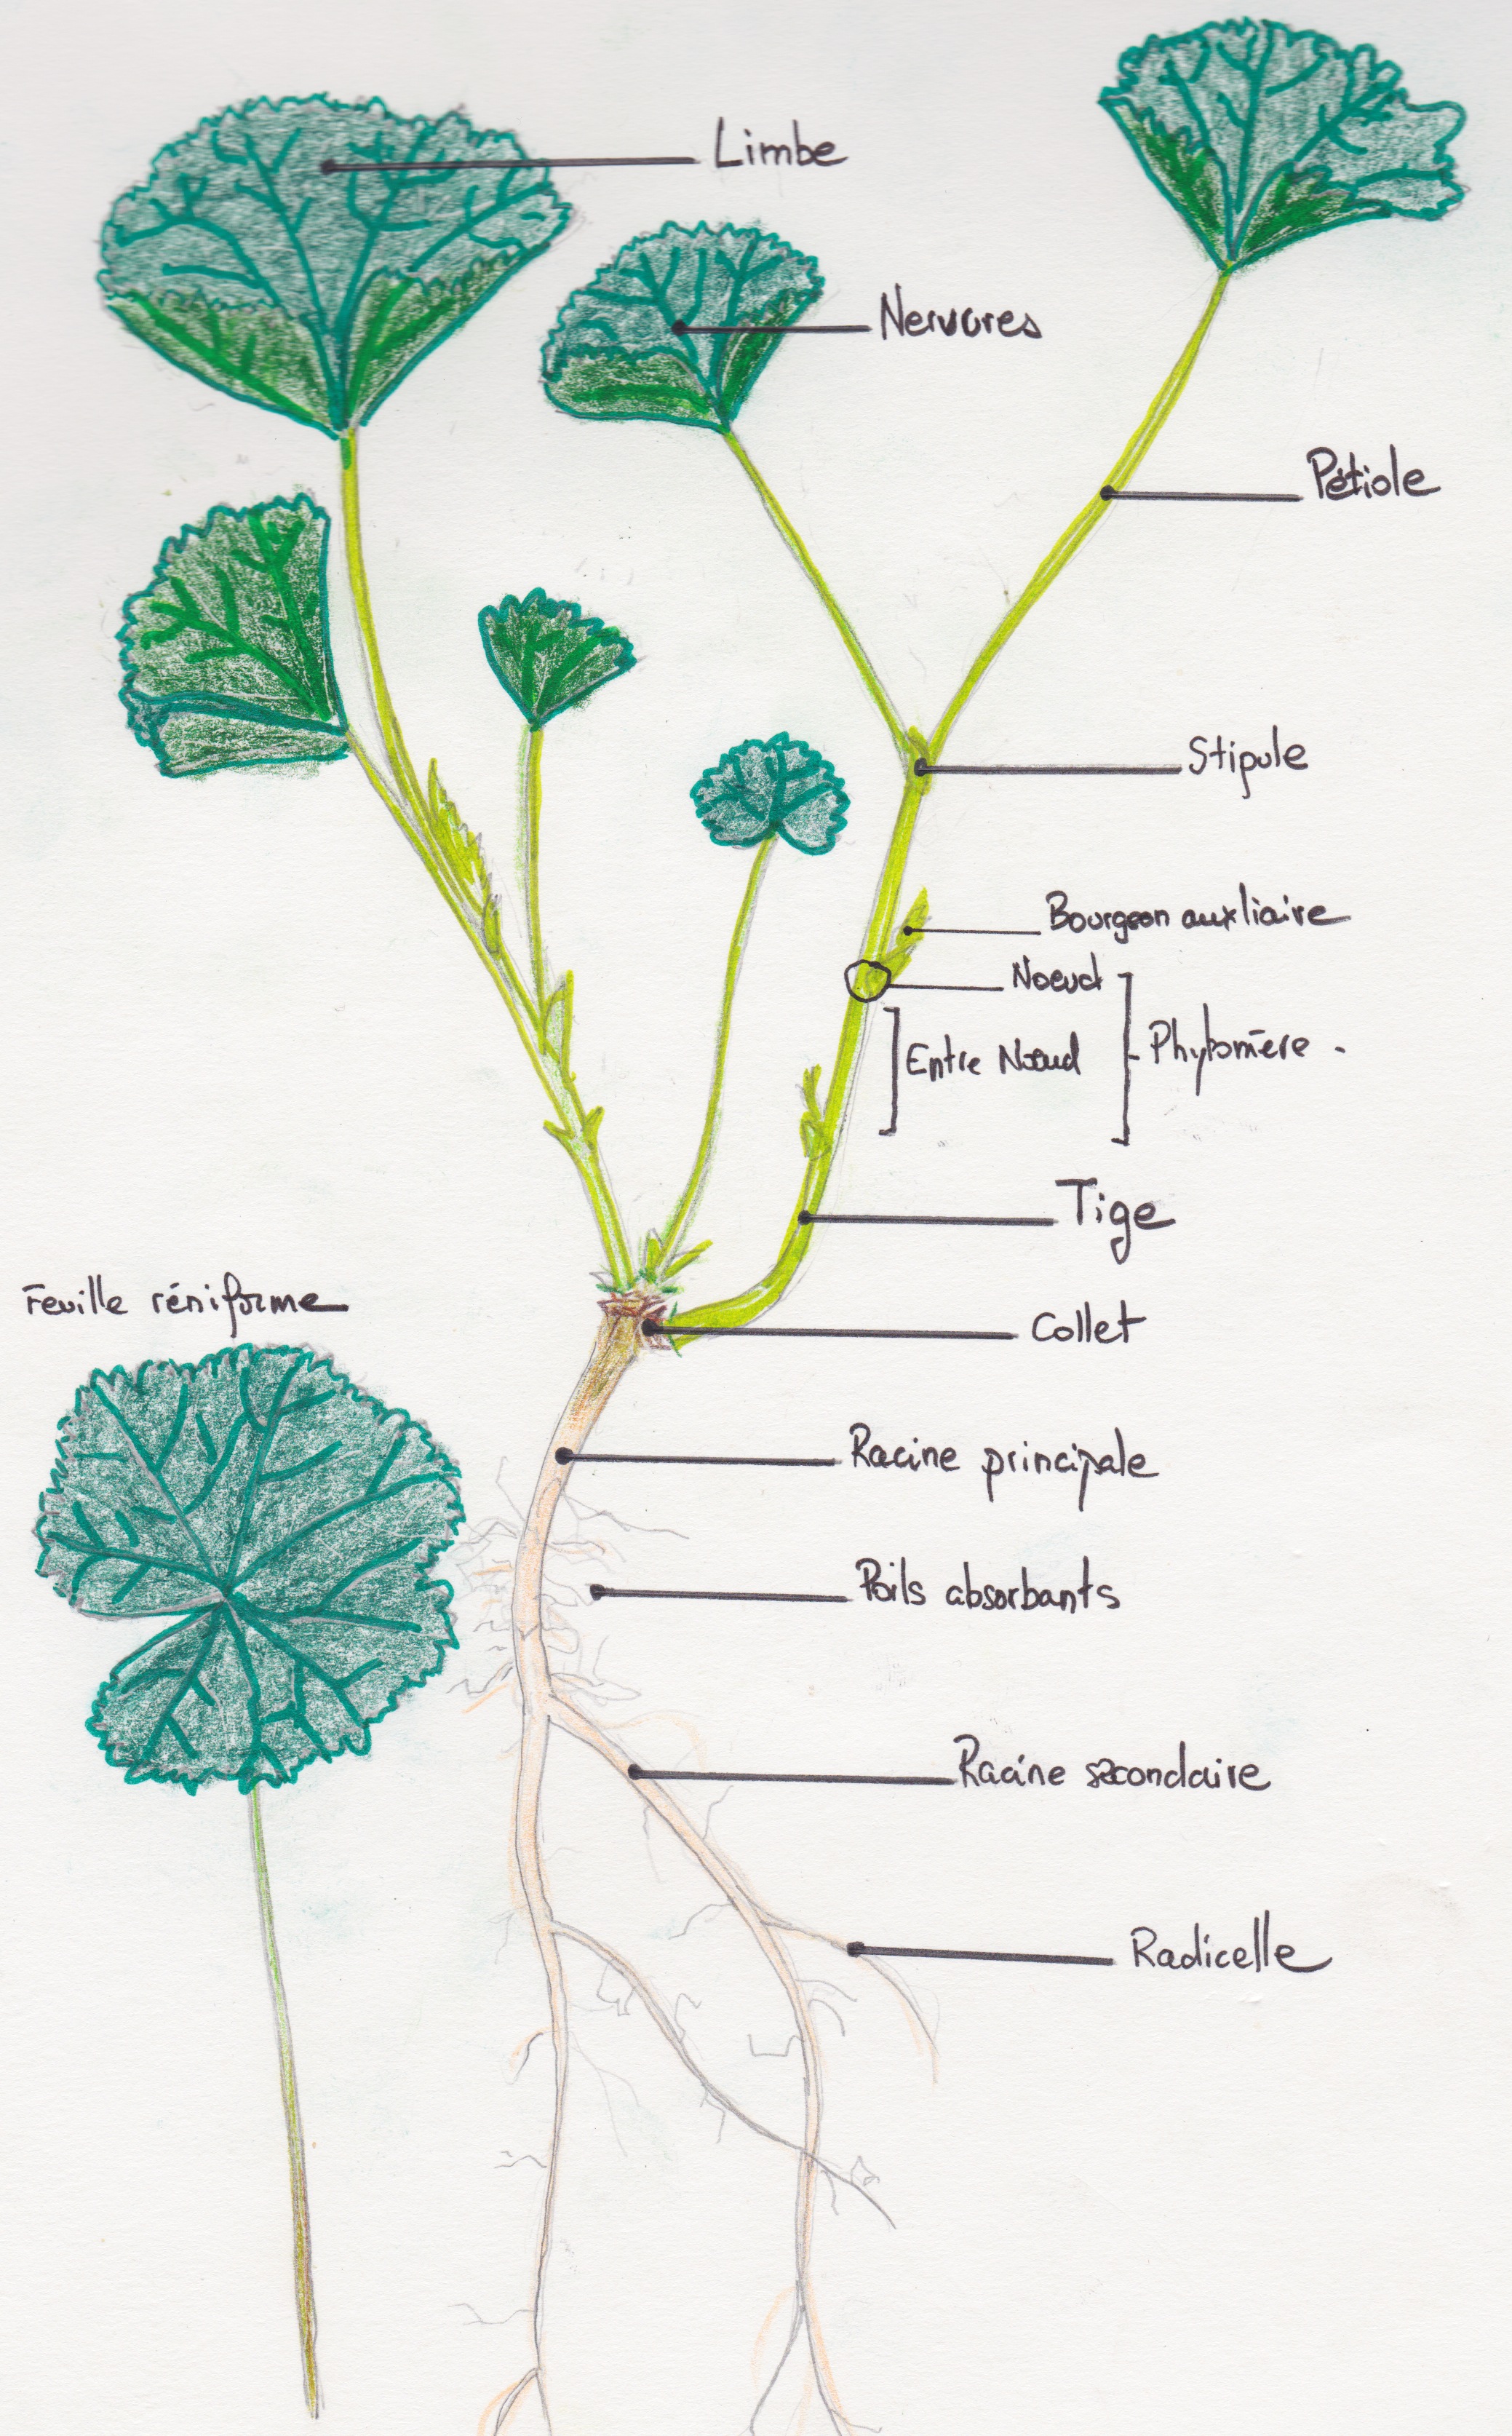 Limbe
Nervures
Pétiole
Stipule
Bourgeon auxliaire
Noeud
Entre Nœud
Phytomère.
Tige
Feuille réniforme
Collet
Racine principale
Poils absorbants
Racine secondaire
Radicelle